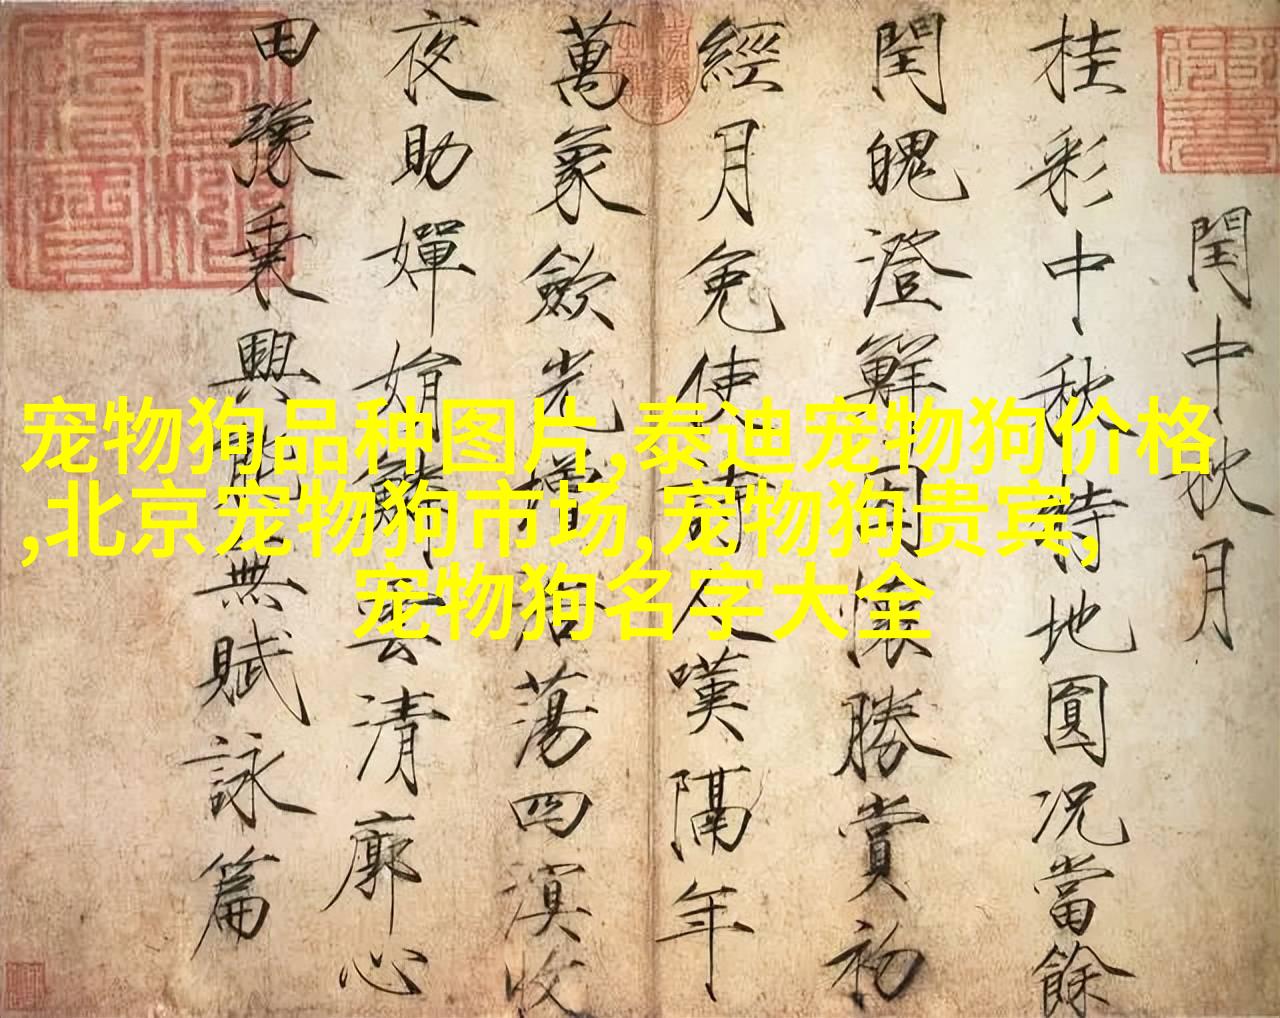 宠物狗品种图片,泰迪宠物狗价格
,北京宠物狗市场,宠物狗贵宾,
宠物狗名字大全
閏中秋月
桂彩中秋特地圓况當餘
閏魄澄鮮因懷勝賞初
經月免使詩人嘆隔年
萬象歛光增浩蕩四溟收
夜助嬋娟鱗雲清廓心
田豫乗興能無賦詠篇